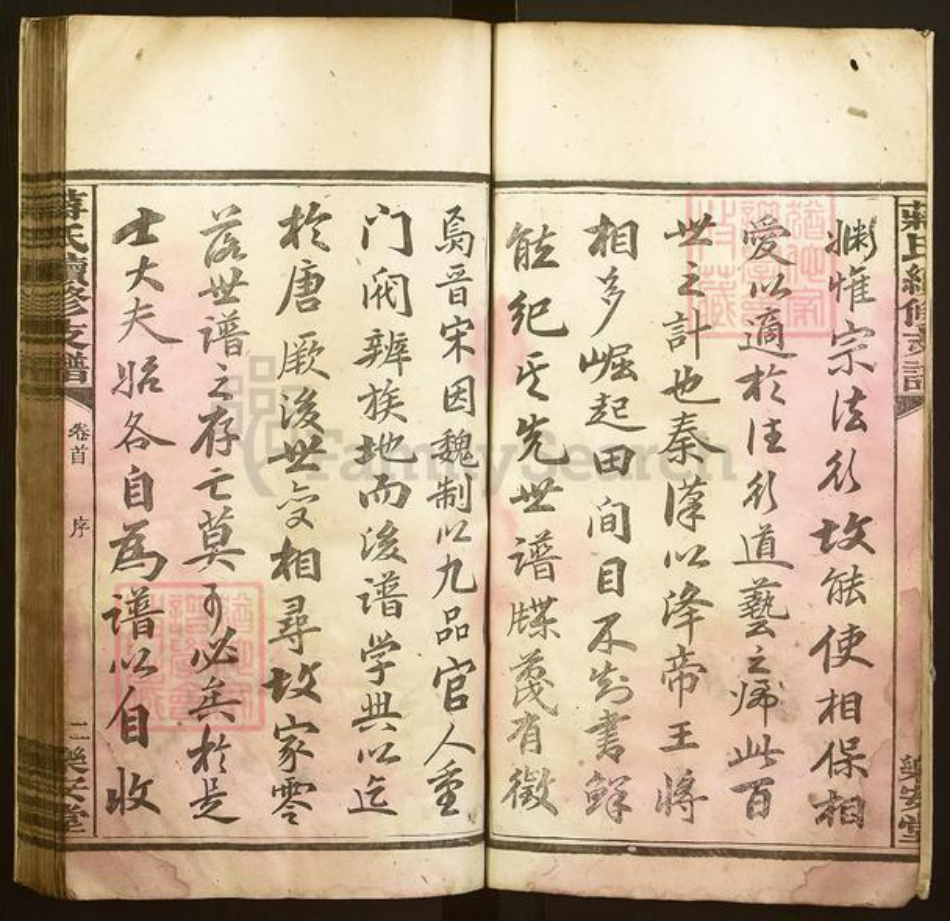 淵惟宗法行故能使相保相
愛以適於往行道藝之歸此百
世之計也秦漢以降帝王將
相多崛起田间目不知書鲜
能纪其先世譜牒蔑有徵
焉晋宋因魏制以九品官人重
门阀辨族地而後譜学興以迄
於唐厥後世变相尋故家零
落世譜之存亡莫可必矣於是
士大夫始各自為譜以自收
蔣氏續修支譜
樂安堂
蔣氏續修支譜
卷首
序
二
樂安堂
FamilySearch